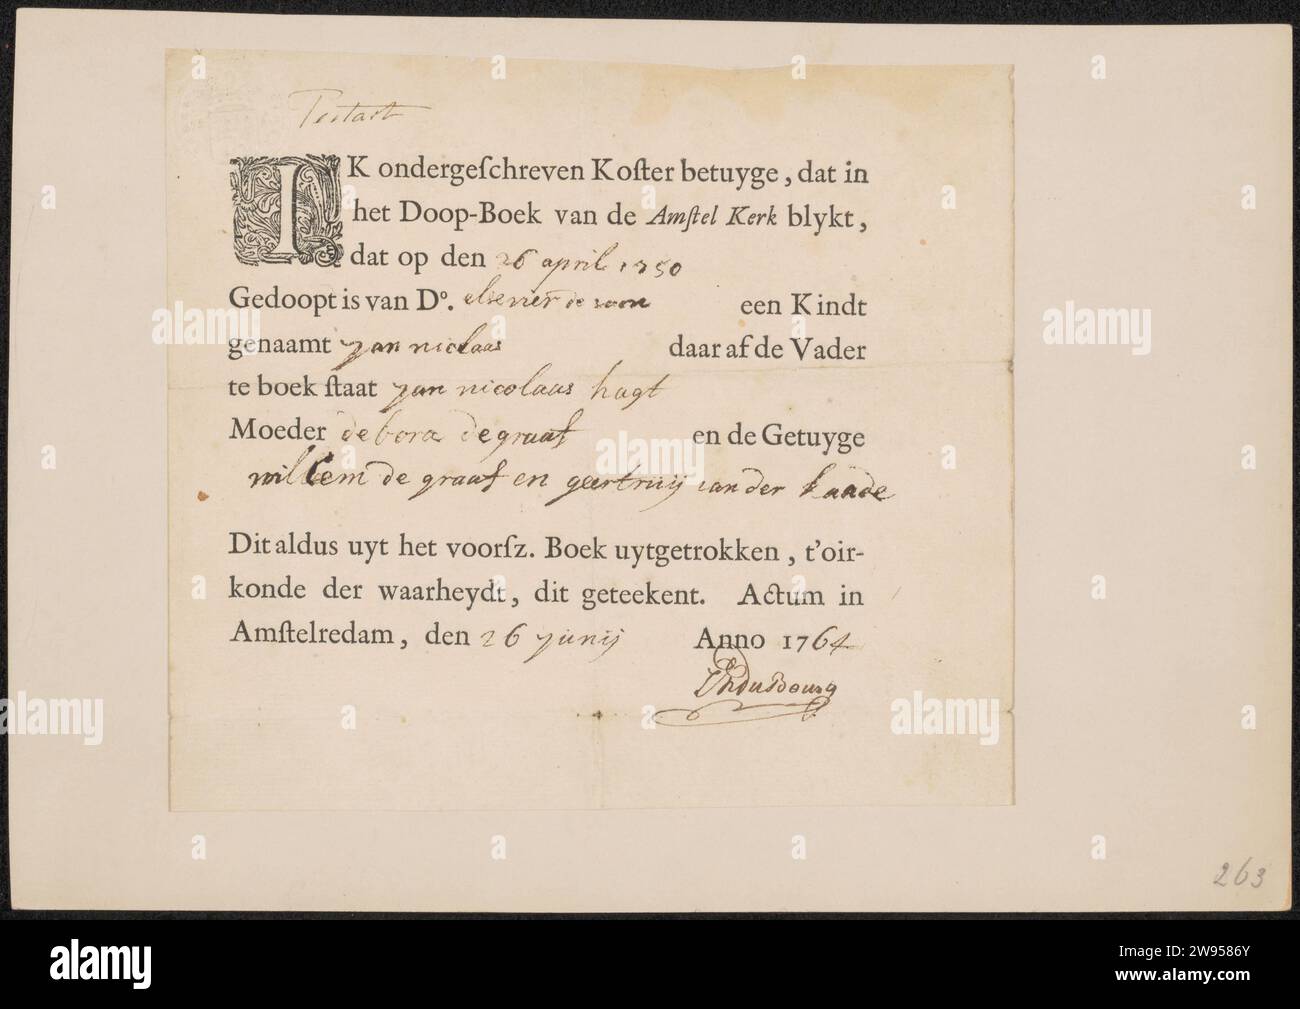 Testart
IK ondergeſchreven Koſter betuyge, dat in
het Doop-Boek van de Amſtel Kerk blykt,
dat op den 26 april 1750
Gedoopt is van Dº. elsenier de een Kindt
genaamt jan niclaas daar af de Vader
te boek ſtaat jan nicolaas hagt
Moeder debora de graaf en de Getuyge
willem de graaf en geertruij van der kaade
Dit aldus uyt het voorſz. Boek uytgetrokken, t'oir-
konde der waarheydt, dit geteekent. Actum in
Amſtelredam, den 26 junij Anno 1764
263
alamy
www.alamy.com
Image ID: 2W9586Y